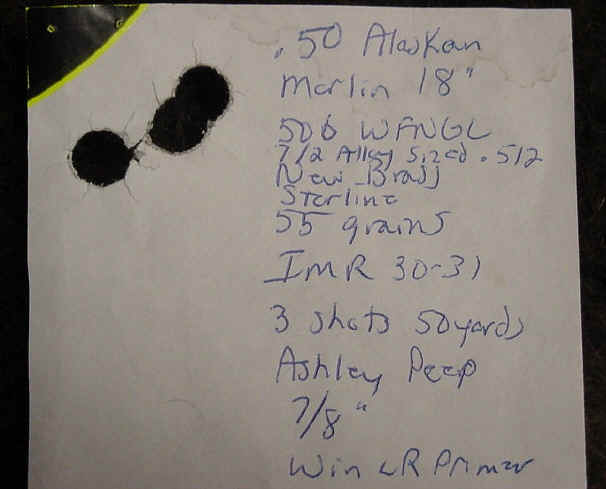 .50 Alaskan
Marlin 18"
506 WFNGC
7/2 Alloy Sized .512
New Brass
Starline
55 grains
IMR 30-31
3 shots 50 yards
Ashley Peep
7/8"
Win LR Primer